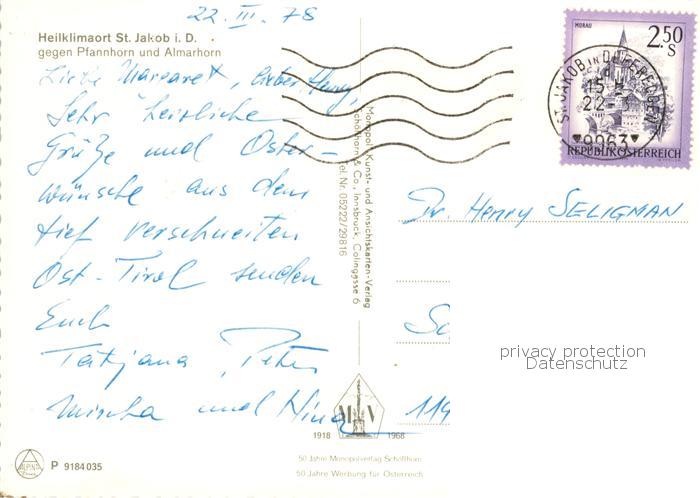 22. III. 78
Heilklimaort St. Jakob i. D.
gegen Pfannhorn und Almarhorn
Liebe Margaret, lieber Henry,
Sehr herzliche
Grüße und Oster-
wünsche aus dem
tief verschneiten
Ost-Tirol senden
Euch
Tatjana, Peter
Mischa und Nina
Monopol Kunst- und Ansichtskarten-Verlag
Schöllhorn & Co., Innsbruck, Colingasse 6
Tel. Nr. 05222/29816
MURAU
2.50
S
REPUBLIK ÖSTERREICH
ST. JAKOB IN DEFEREGGEN
22
9963
Dr. Henry SELIGMAN
privacy protection
Datenschutz
119
M V
1918 1968
50 Jahre Monopolverlag Schöllhorn
50 Jahre Werbung für Österreich
ALPINA
P 9184035